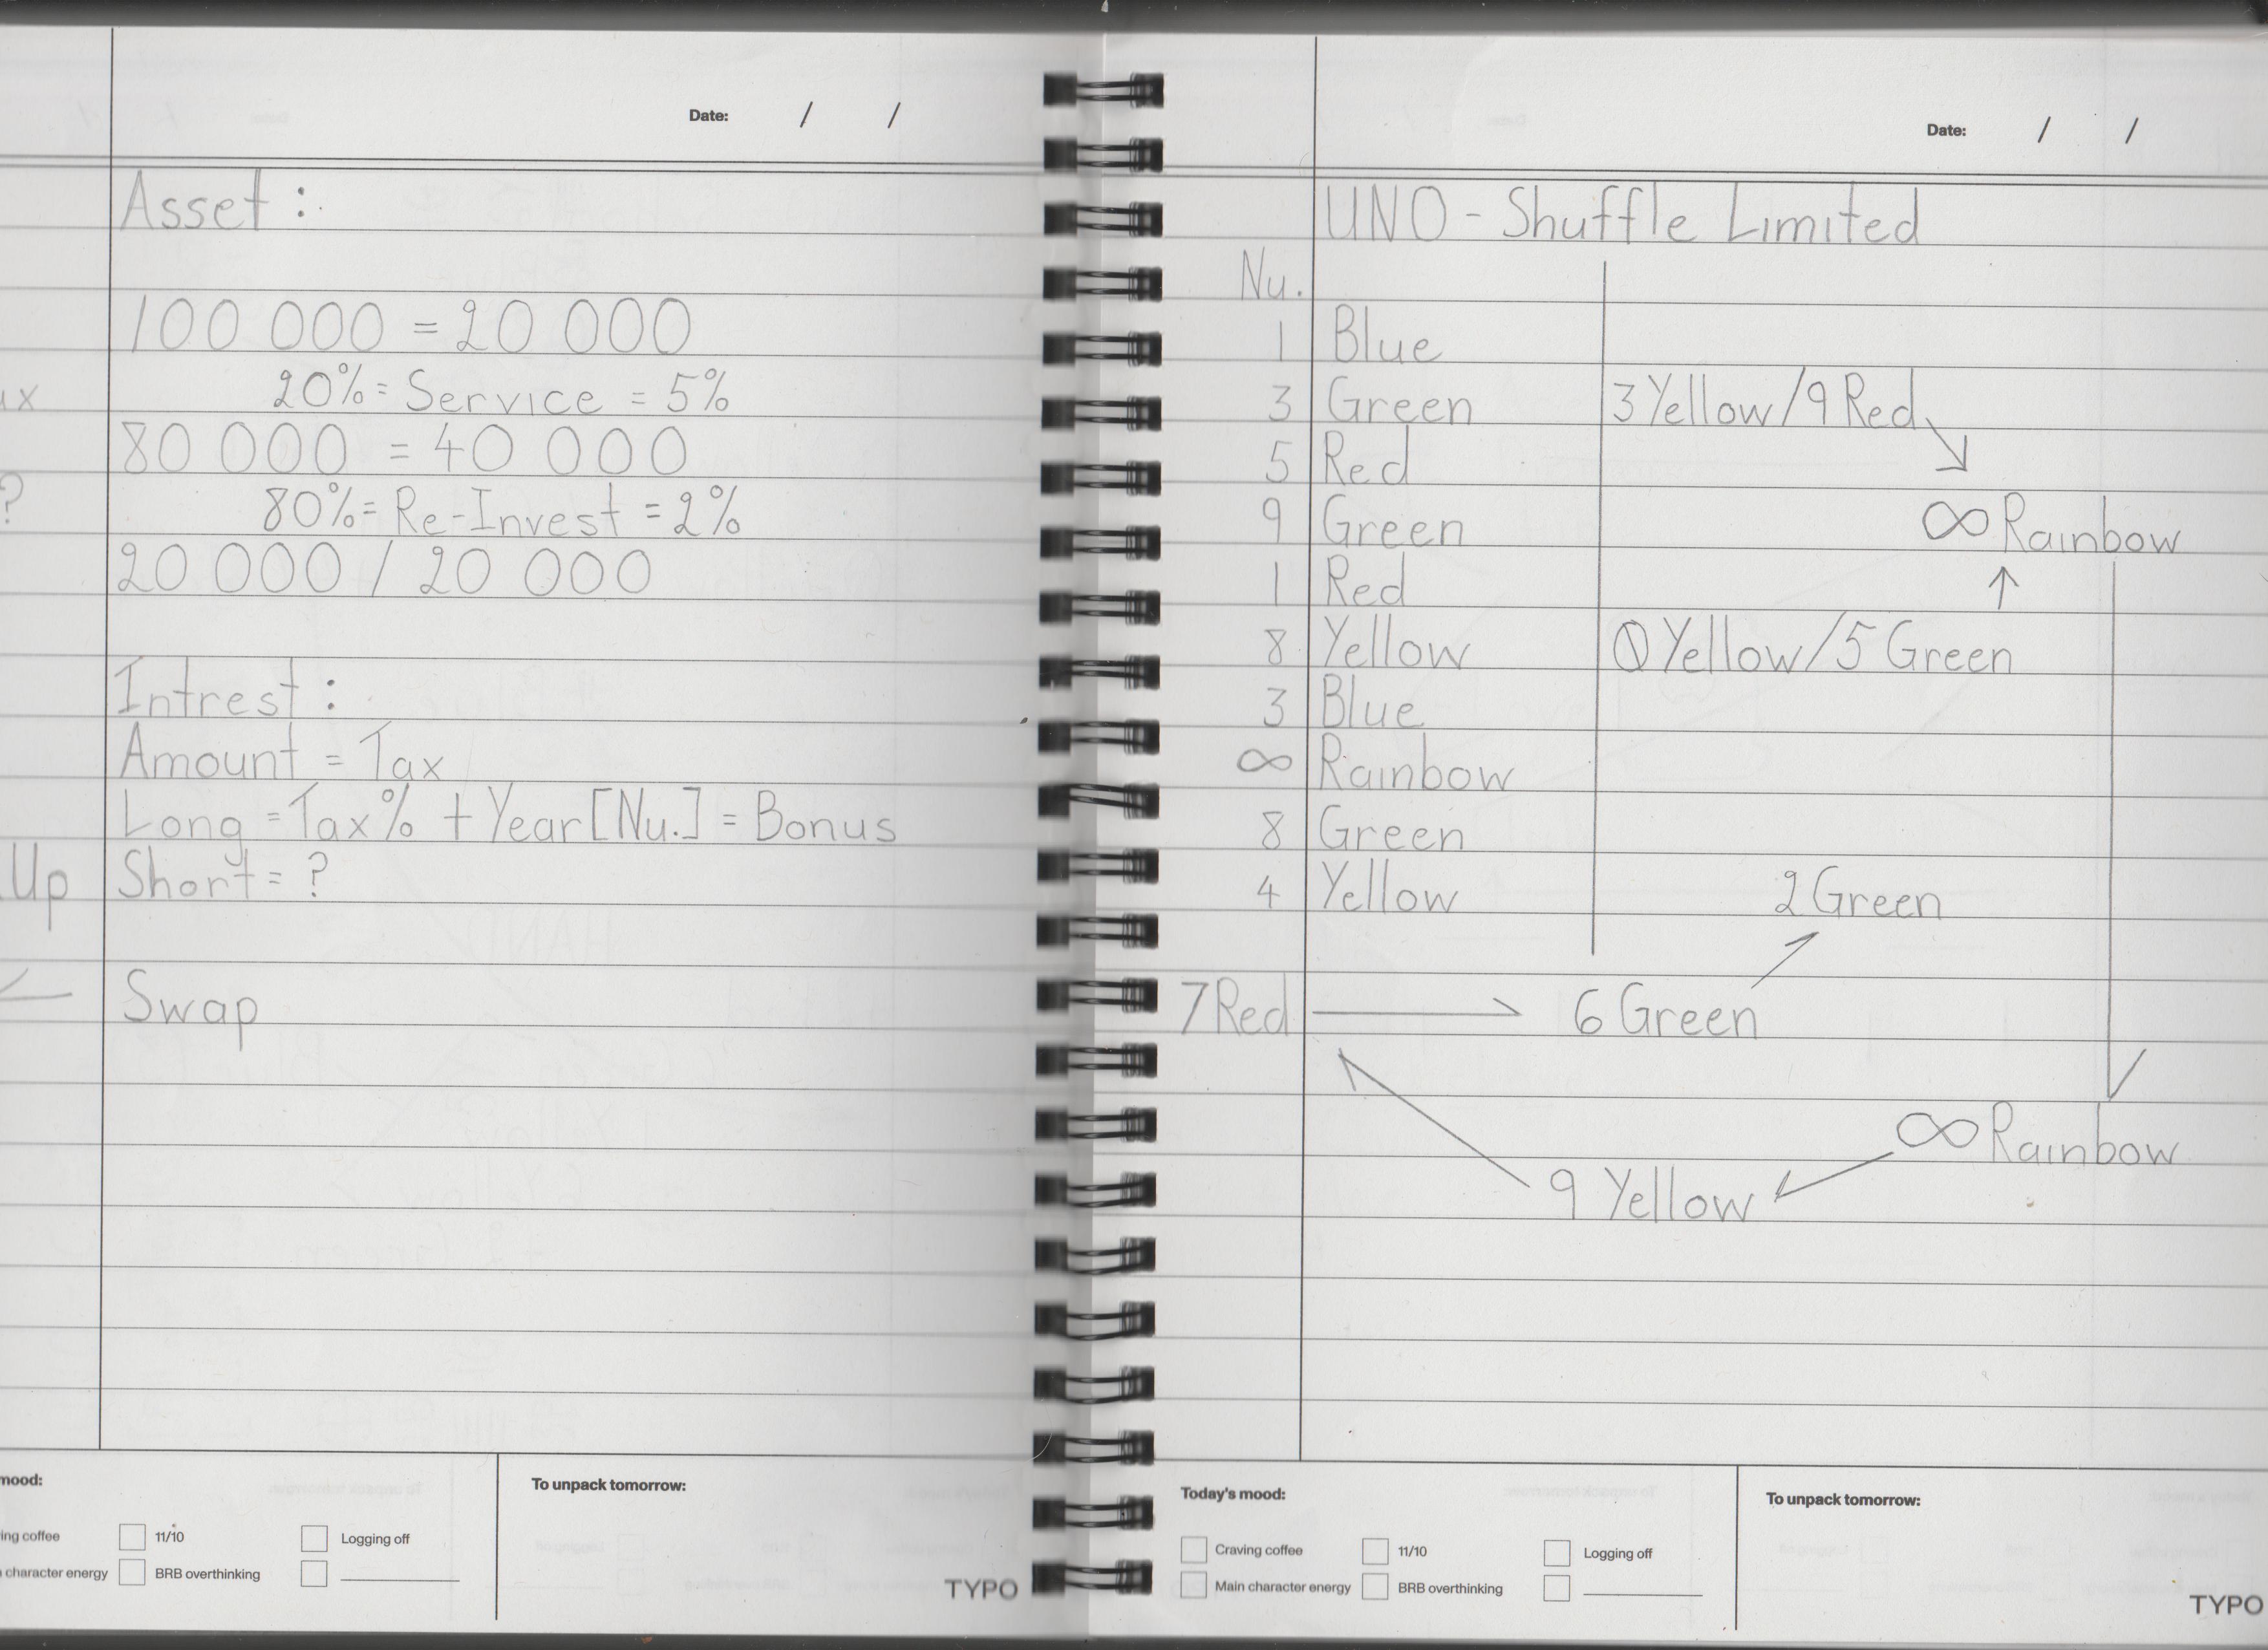 Date: / /
Asset :
100 000 = 20 000
20% = Service = 5%
80 000 = 40 000
?
80% = Re-Invest = 2%
20 000 / 20 000
Intrest :
Amount = Tax
Long = Tax% + Year [Nu.] = Bonus
Up Short = ?
Swap
mood:
11/10
Logging off
character energy
BRB overthinking
To unpack tomorrow:
TYPO
Date: / /
UNO - Shuffle Limited
Nu.
1 Blue
3 Green 3 Yellow / 9 Red
5 Red
9 Green ∞ Rainbow
1 Red
8 Yellow 0 Yellow / 5 Green
3 Blue
∞ Rainbow
8 Green
4 Yellow 2 Green
7 Red → 6 Green
∞ Rainbow
9 Yellow
Today's mood:
Craving coffee
11/10
Logging off
Main character energy
BRB overthinking
To unpack tomorrow:
TYPO